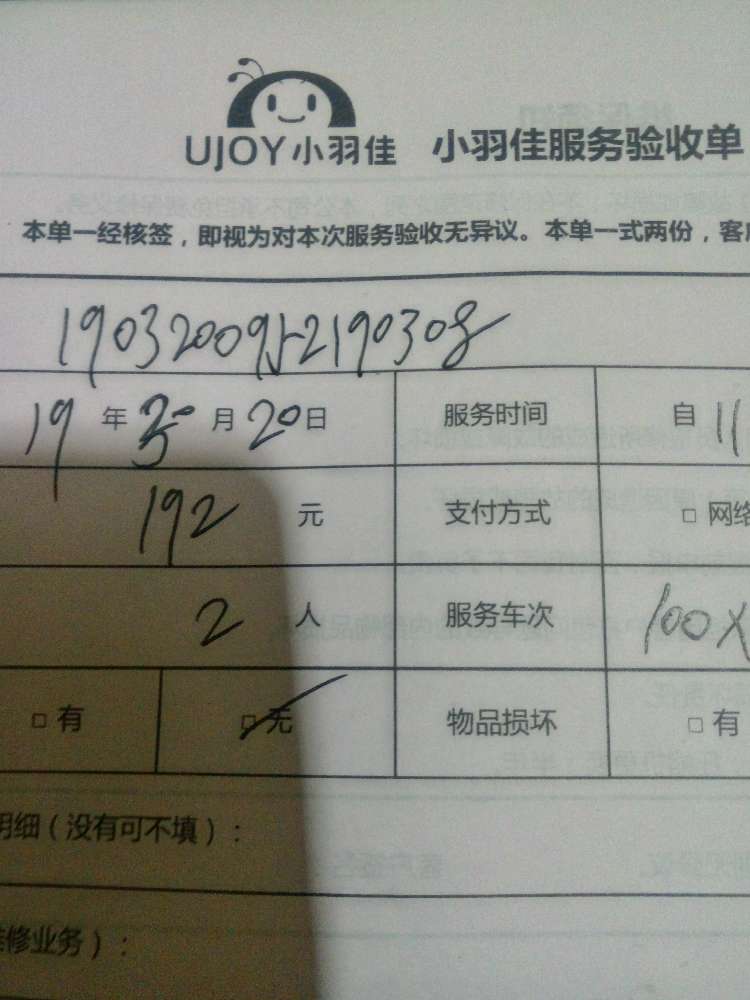 UJOY小羽佳 小羽佳服务验收单
本单一经核签，即视为对本次服务验收无异议。本单一式两份，客户
19 年 月 20 日 服务时间 自 11
192 元 支付方式 □ 网络
2 人 服务车次 100X
□ 有 □ 无 物品损坏 □ 有
明细（没有可不填）：
维修业务）：